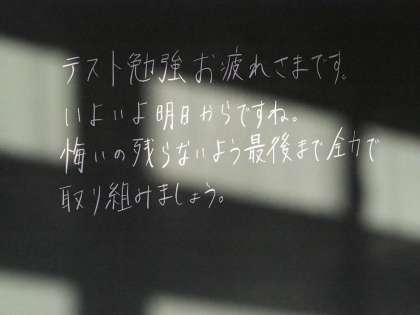 テスト勉強お疲れさまです。
いよいよ明日からですね。
悔いの残らないよう最後まで全力で
取り組みましょう。